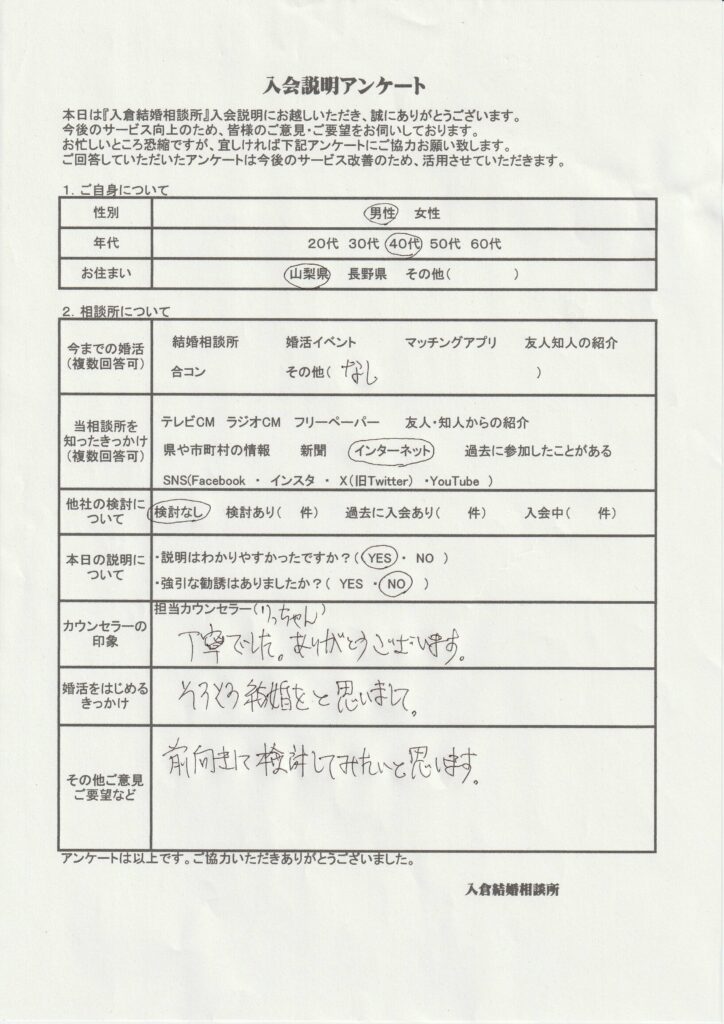 入会説明アンケート
本日は『入倉結婚相談所』入会説明にお越しいただき、誠にありがとうございます。
今後のサービス向上のため、皆様のご意見・ご要望をお伺いしております。
お忙しいところ恐縮ですが、宜しければ下記アンケートにご協力お願い致します。
ご回答していただいたアンケートは今後のサービス改善のため、活用させていただきます。
1. ご自身について
性別 男性 女性
年代 20代 30代 40代 50代 60代
お住まい 山梨県 長野県 その他( )
2. 相談所について
今までの婚活
(複数回答可)
結婚相談所 婚活イベント マッチングアプリ 友人知人の紹介
合コン その他( なし )
当相談所を
知ったきっかけ
(複数回答可)
テレビCM ラジオCM フリーペーパー 友人・知人からの紹介
県や市町村の情報 新聞 インターネット 過去に参加したことがある
SNS(Facebook ・ インスタ ・ X(旧Twitter) ・YouTube )
他社の検討に
ついて
検討なし 検討あり( 件) 過去に入会あり( 件) 入会中( 件)
本日の説明に
ついて
・説明はわかりやすかったですか?( YES ・ NO )
・強引な勧誘はありましたか?( YES ・ NO )
カウンセラーの
印象
担当カウンセラー(りっちゃん)
丁寧でした。ありがとうございます。
婚活をはじめる
きっかけ
そろそろ結婚をと思いまして。
その他ご意見
ご要望など
前向きに検討してみたいと思います。
アンケートは以上です。ご協力いただきありがとうございました。
入倉結婚相談所